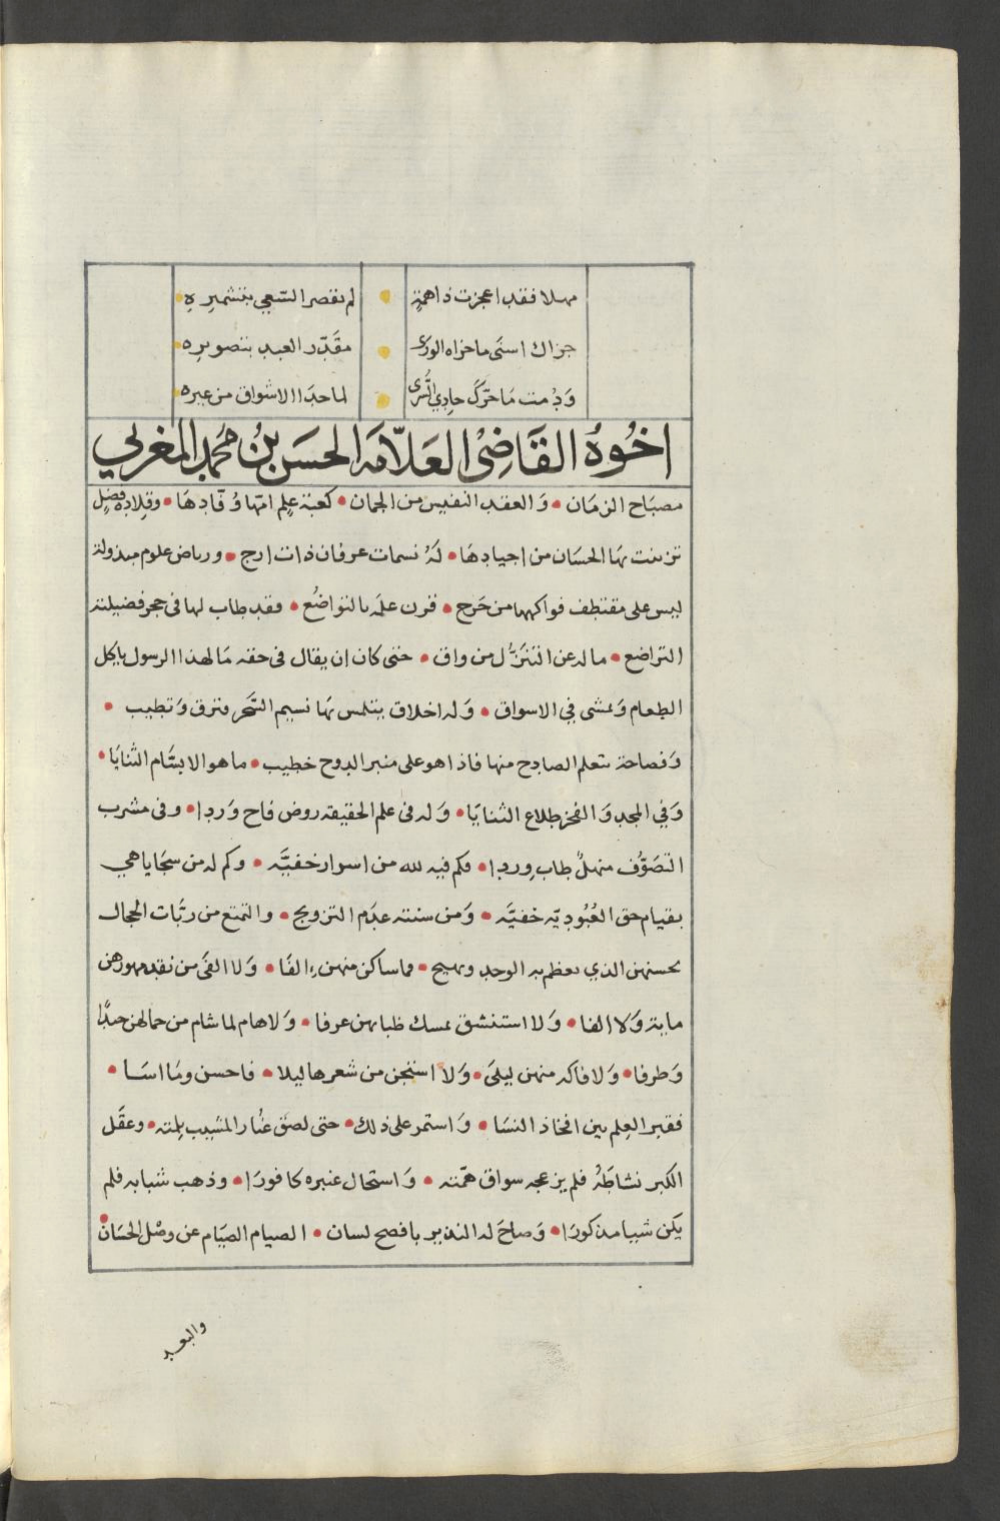 مهلا فقد اعجزت ذا همة • لم يقصر السّعي بتشميره
جزاك اسنى ما جزاه الورى • مقدّر العبد بتصويره
وَدُمت مَا حرّك حادي السُّرى • لما حدَا الاشواق من عيره
اخُوهُ القَاضِيْ العَلاّمَه الحسَن بنُ محُمد المغربي
مصبَاح الزمَان • وَالعقد النفيس من الجمان • كعبَة علمٍ امّها وُفّادهَا • وقلادة فضلٍ
تزينت بهَا الحسَان من اجيادهَا • لَهُ نسمات عرفان ذات ارج • ورياض علوم مبذولة
ليس على مقتطف فواكهها من حَرج • قرن علمَه بالتواضُع • فقد طاب لها فى حجر فضيلته
التراضع • ما له عن التنزُّل من واق • حتى كان ان يقال فى حقه مَا لهذا الرسول ياكل
الطعام وَيمشى في الاسواق • وَله اخلاق يتلمس بهَا نسيم السَّحر فترق وَتطيب •
وَفصاحة يتعلم الصادح منها فاذا هو على منبر الدوح خطيب • ما هو الا بسَّام الثنايَا •
وَفي المجد وَالفخر طلاع الثنايَا • وَله فى علم الحقيقه روض فاح وَردا • وفى مشرب
التصَوُّف منهلٌ طاب وِردا • فكم فيه لله من اسرار خفيَّه • وكم له من سجَايا هي
بقيام حق العُبُوديّه خفيَّه • وَمن سنته عدَم التزويج • والتمتع من ربَّات الحجال
بحسنهن الذي يعظم به الوجد ويهيج • فما ساكن منهن الفَا • وَلا الفَى من نقد مهورهن
ماية وَلا الفا • وَلا استنشق بمسك ظبايهن عرفا • وَلا هام لما شام من جمالهن خدًّا
وَطرفا • وَلا فاكه منهن ليلَى • وَلا استجن من شعرها ليلا • فاحسن ومَا اسَا •
فقبر العِلم بين افخاذ النسَا • وَاستمر على ذلك • حتى لصق غُبار المشيب بلمته • وعقَل
الكبر نشاطَهُ فلم يزعجه سواق همّته • وَاستحال عنبره كافورَا • وذهب شبابه فلم
يكن شيا مذكورَا • وَصاحَ له النذير بافصح لسان • الصيام الصيَام عن وصْل الحسَان •
والبعد